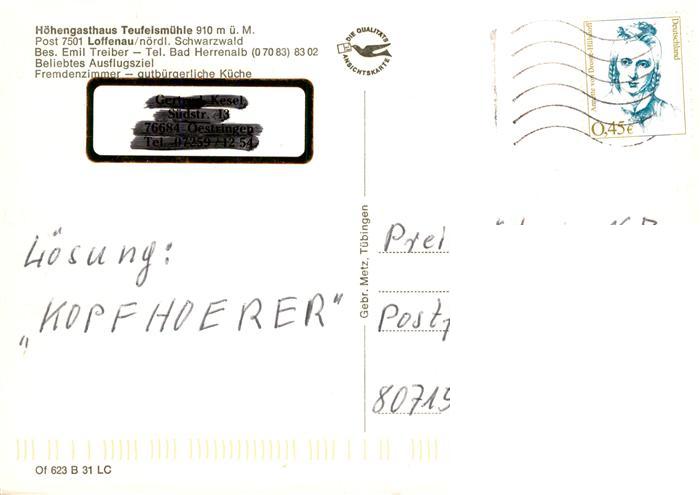 Höhengasthaus Teufelsmühle 910 m ü. M.
Post 7501 Loffenau/nördl. Schwarzwald
Bes. Emil Treiber – Tel. Bad Herrenalb (0 70 83) 83 02
Beliebtes Ausflugsziel
Fremdenzimmer – gutbürgerliche Küche
Kesel
Südstr. 43
76684 Oestringen
Tel. 07259/12 54
DIE QUALITÄTS
ANSICHTSKARTE
Annette von Droste-Hülshoff
Deutschland
0,45€
Lösung:
„KOPFHOERER"
Gebr. Metz, Tübingen
Prei
Post
80713
Of 623 B 31 LC